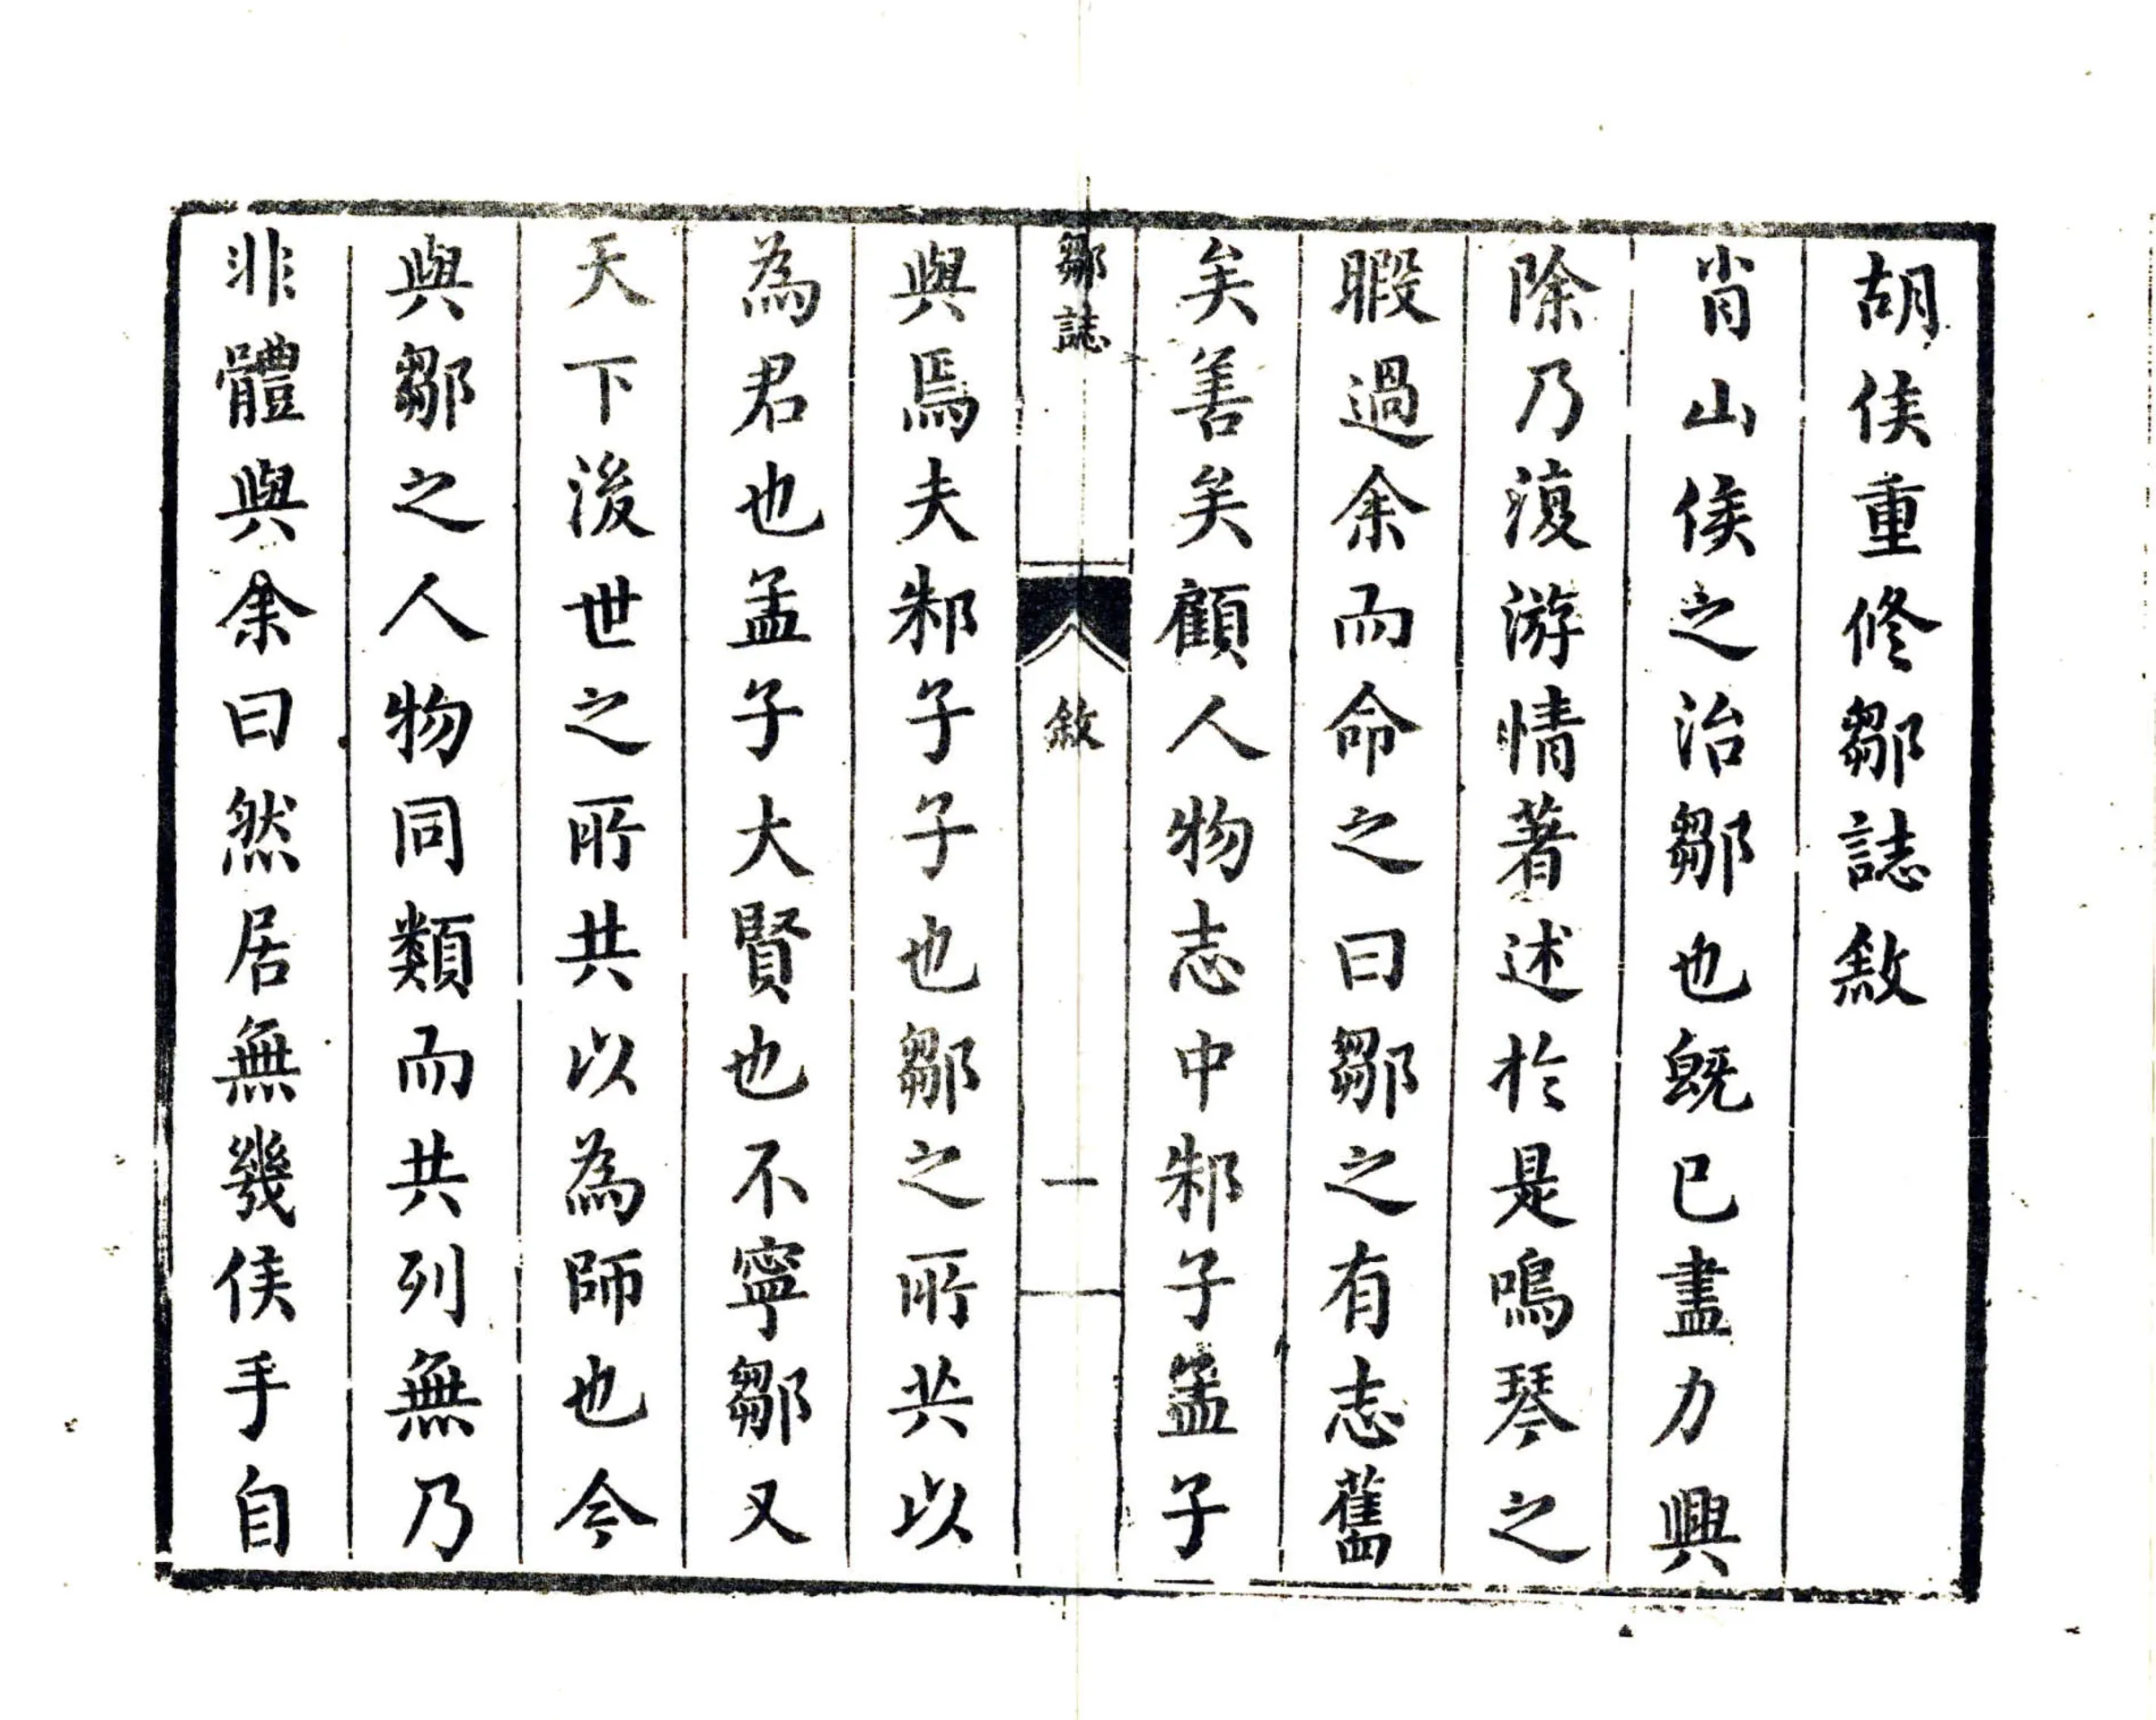 胡侯重修鄒誌敘
肖山侯之治鄒也既已盡力興
除乃復游情著述於是鳴琴之
暇過余而命之曰鄒之有志舊
矣善矣顧人物志中邾子孟子
鄒誌
敘
一
與焉夫邾子子也鄒之所共以
為君也孟子大賢也不寧鄒又
天下後世之所共以為師也今
與鄒之人物同類而共列無乃
非體與余曰然居無幾侯手自